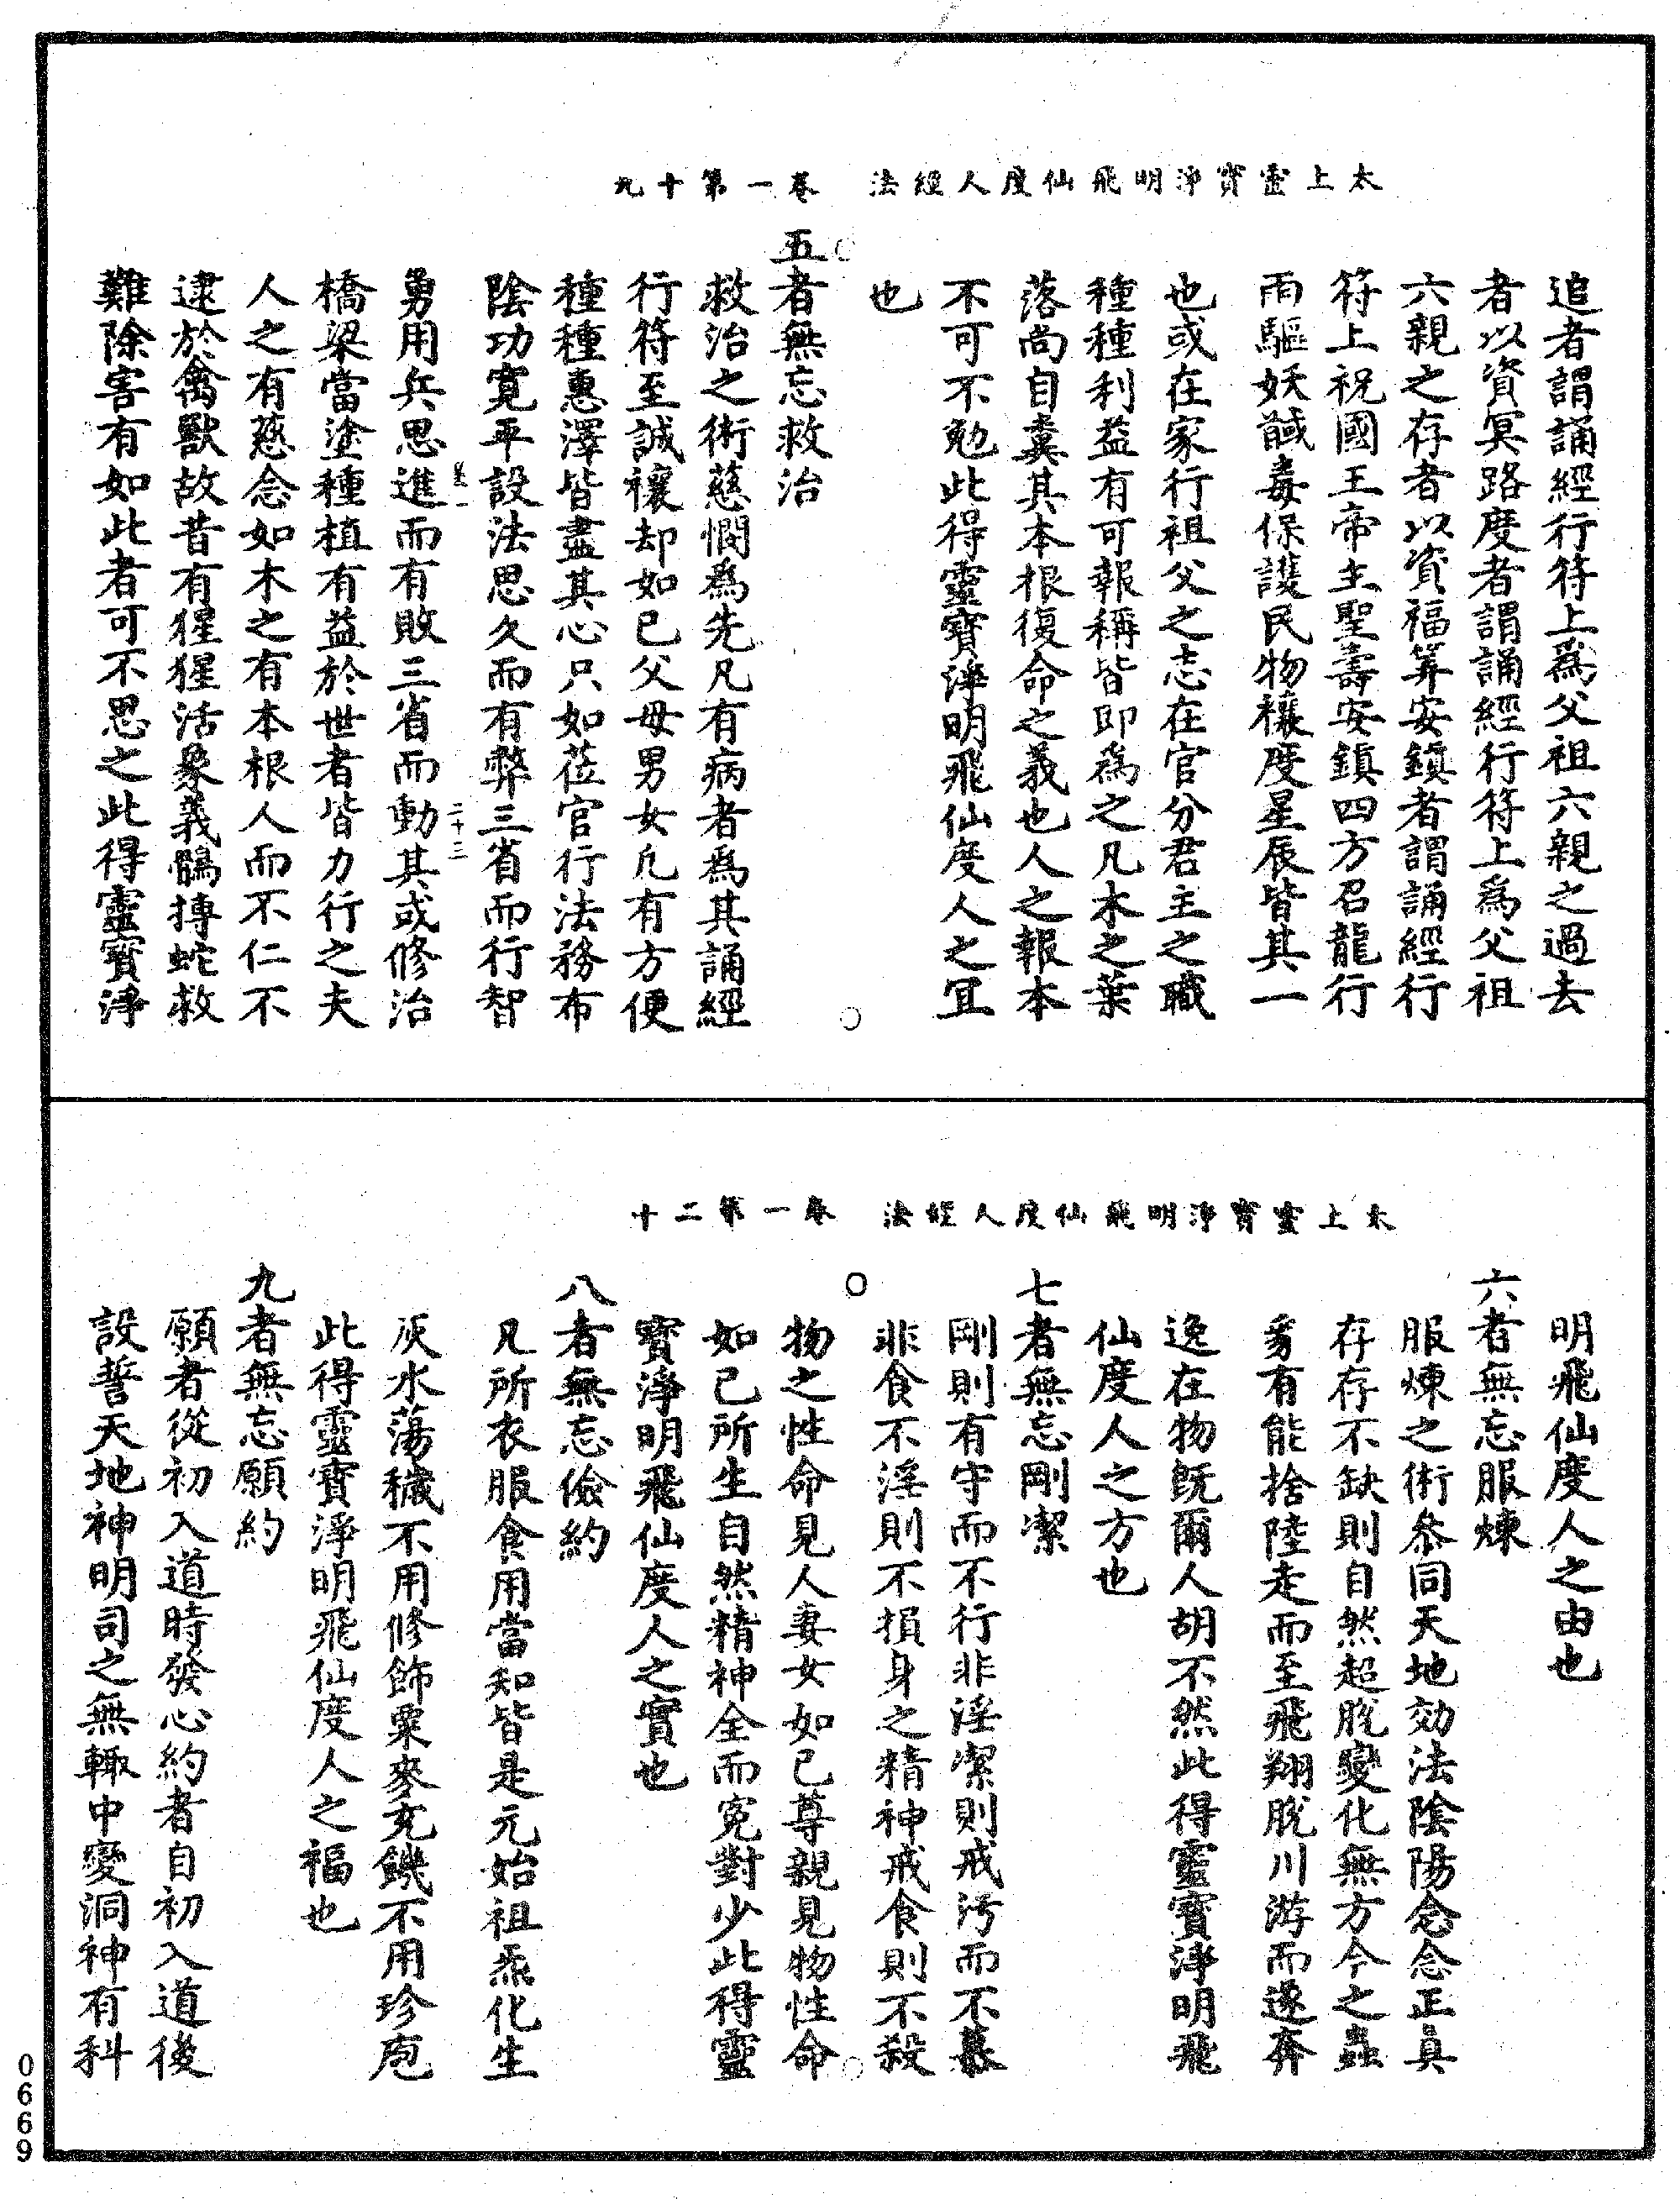 太上靈寶淨明飛仙度人經法　卷一第十九
追者謂誦經行符上爲父祖六親之過去
者以資冥路度者謂誦經行符上爲父祖
六親之存者以資福筭安鎮者謂誦經行
符上祝國王帝主聖壽安鎮四方召龍行
雨驅妖馘毒保護民物禳度星辰皆其一
也或在家行祖父之志在官分君主之職
種種利益有可報稱皆即爲之凡木之葉
落尚自糞其本根復命之義也人之報本
不可不勉此得靈寶淨明飛仙度人之冝
也
五者無忘救治
救治之術慈憫爲先凡有病者爲其誦經
行符至誠禳却如已父母男女凡有方便
種種惠澤皆盡其心只如莅官行法務布
陰功寬平設法思久而有弊三省而行智
卷一
二十三
勇用兵思進而有敗三省而動其或修治
橋梁當塗種植有益於世者皆力行之夫
人之有慈念如木之有本根人而不仁不
逮於禽獸故昔有猩猩活象義鶻搏蛇救
難除害有如此者可不思之此得靈寶淨
太上靈寶淨明飛仙度人經法　卷一第二十
明飛仙度人之由也
六者無忘服煉
服煉之術叅同天地効法陰陽念念正真
存存不缺則自然超脫變化無方今之蟲
豸有能捨陸走而至飛翔脫川游而遂奔
逸在物旣爾人胡不然此得靈寶淨明飛
仙度人之方也
七者無忘剛潔
剛則有守而不行非淫潔則戒汚而不慕
非食不淫則不損身之精神戒食則不殺
物之性命見人妻女如已尊親見物性命
如已所生自然精神全而寃對少此得靈
寶淨明飛仙度人之實也
八者無忘儉約
凡所衣服食用當知皆是元始祖炁化生
灰水蕩穢不用修飾粟麥充饑不用珍庖
此得靈寶淨明飛仙度人之福也
九者無忘願約
願者從初入道時發心約者自初入道後
設誓天地神明司之無輙中變洞神有科
0669